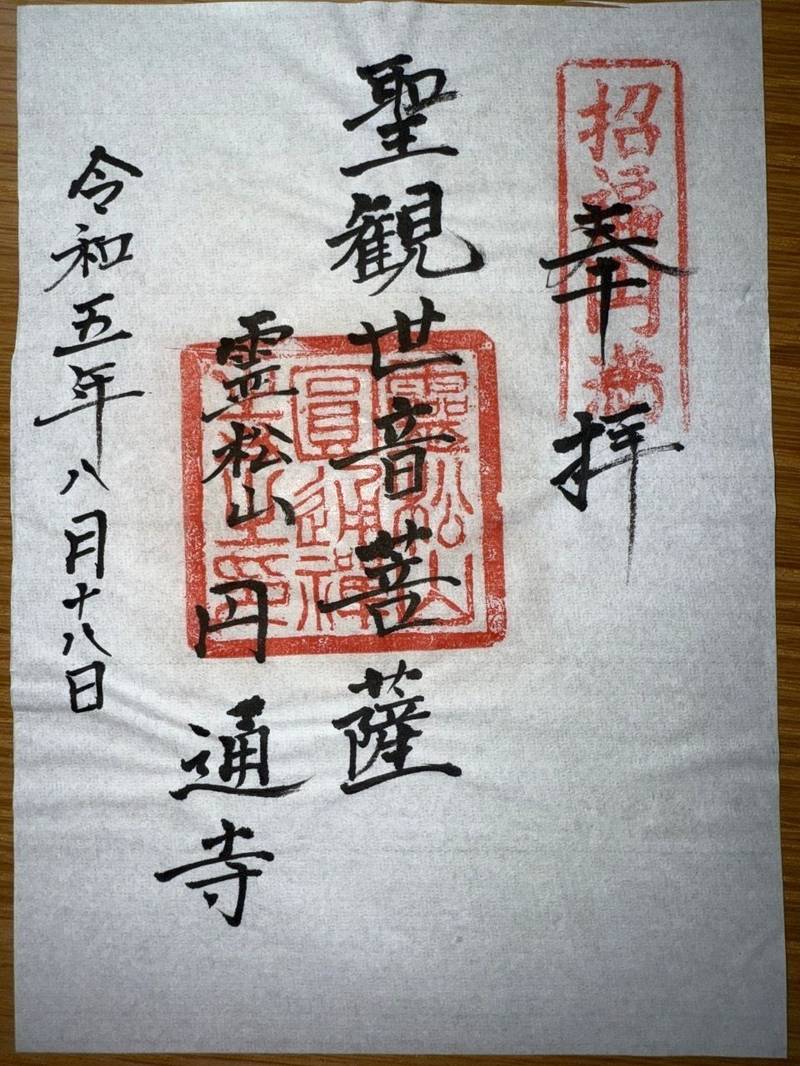 招福円満
奉拝
聖観世音菩薩
霊松山
圓通禅
寺之印
霊松山円通寺
令和五年八月十八日